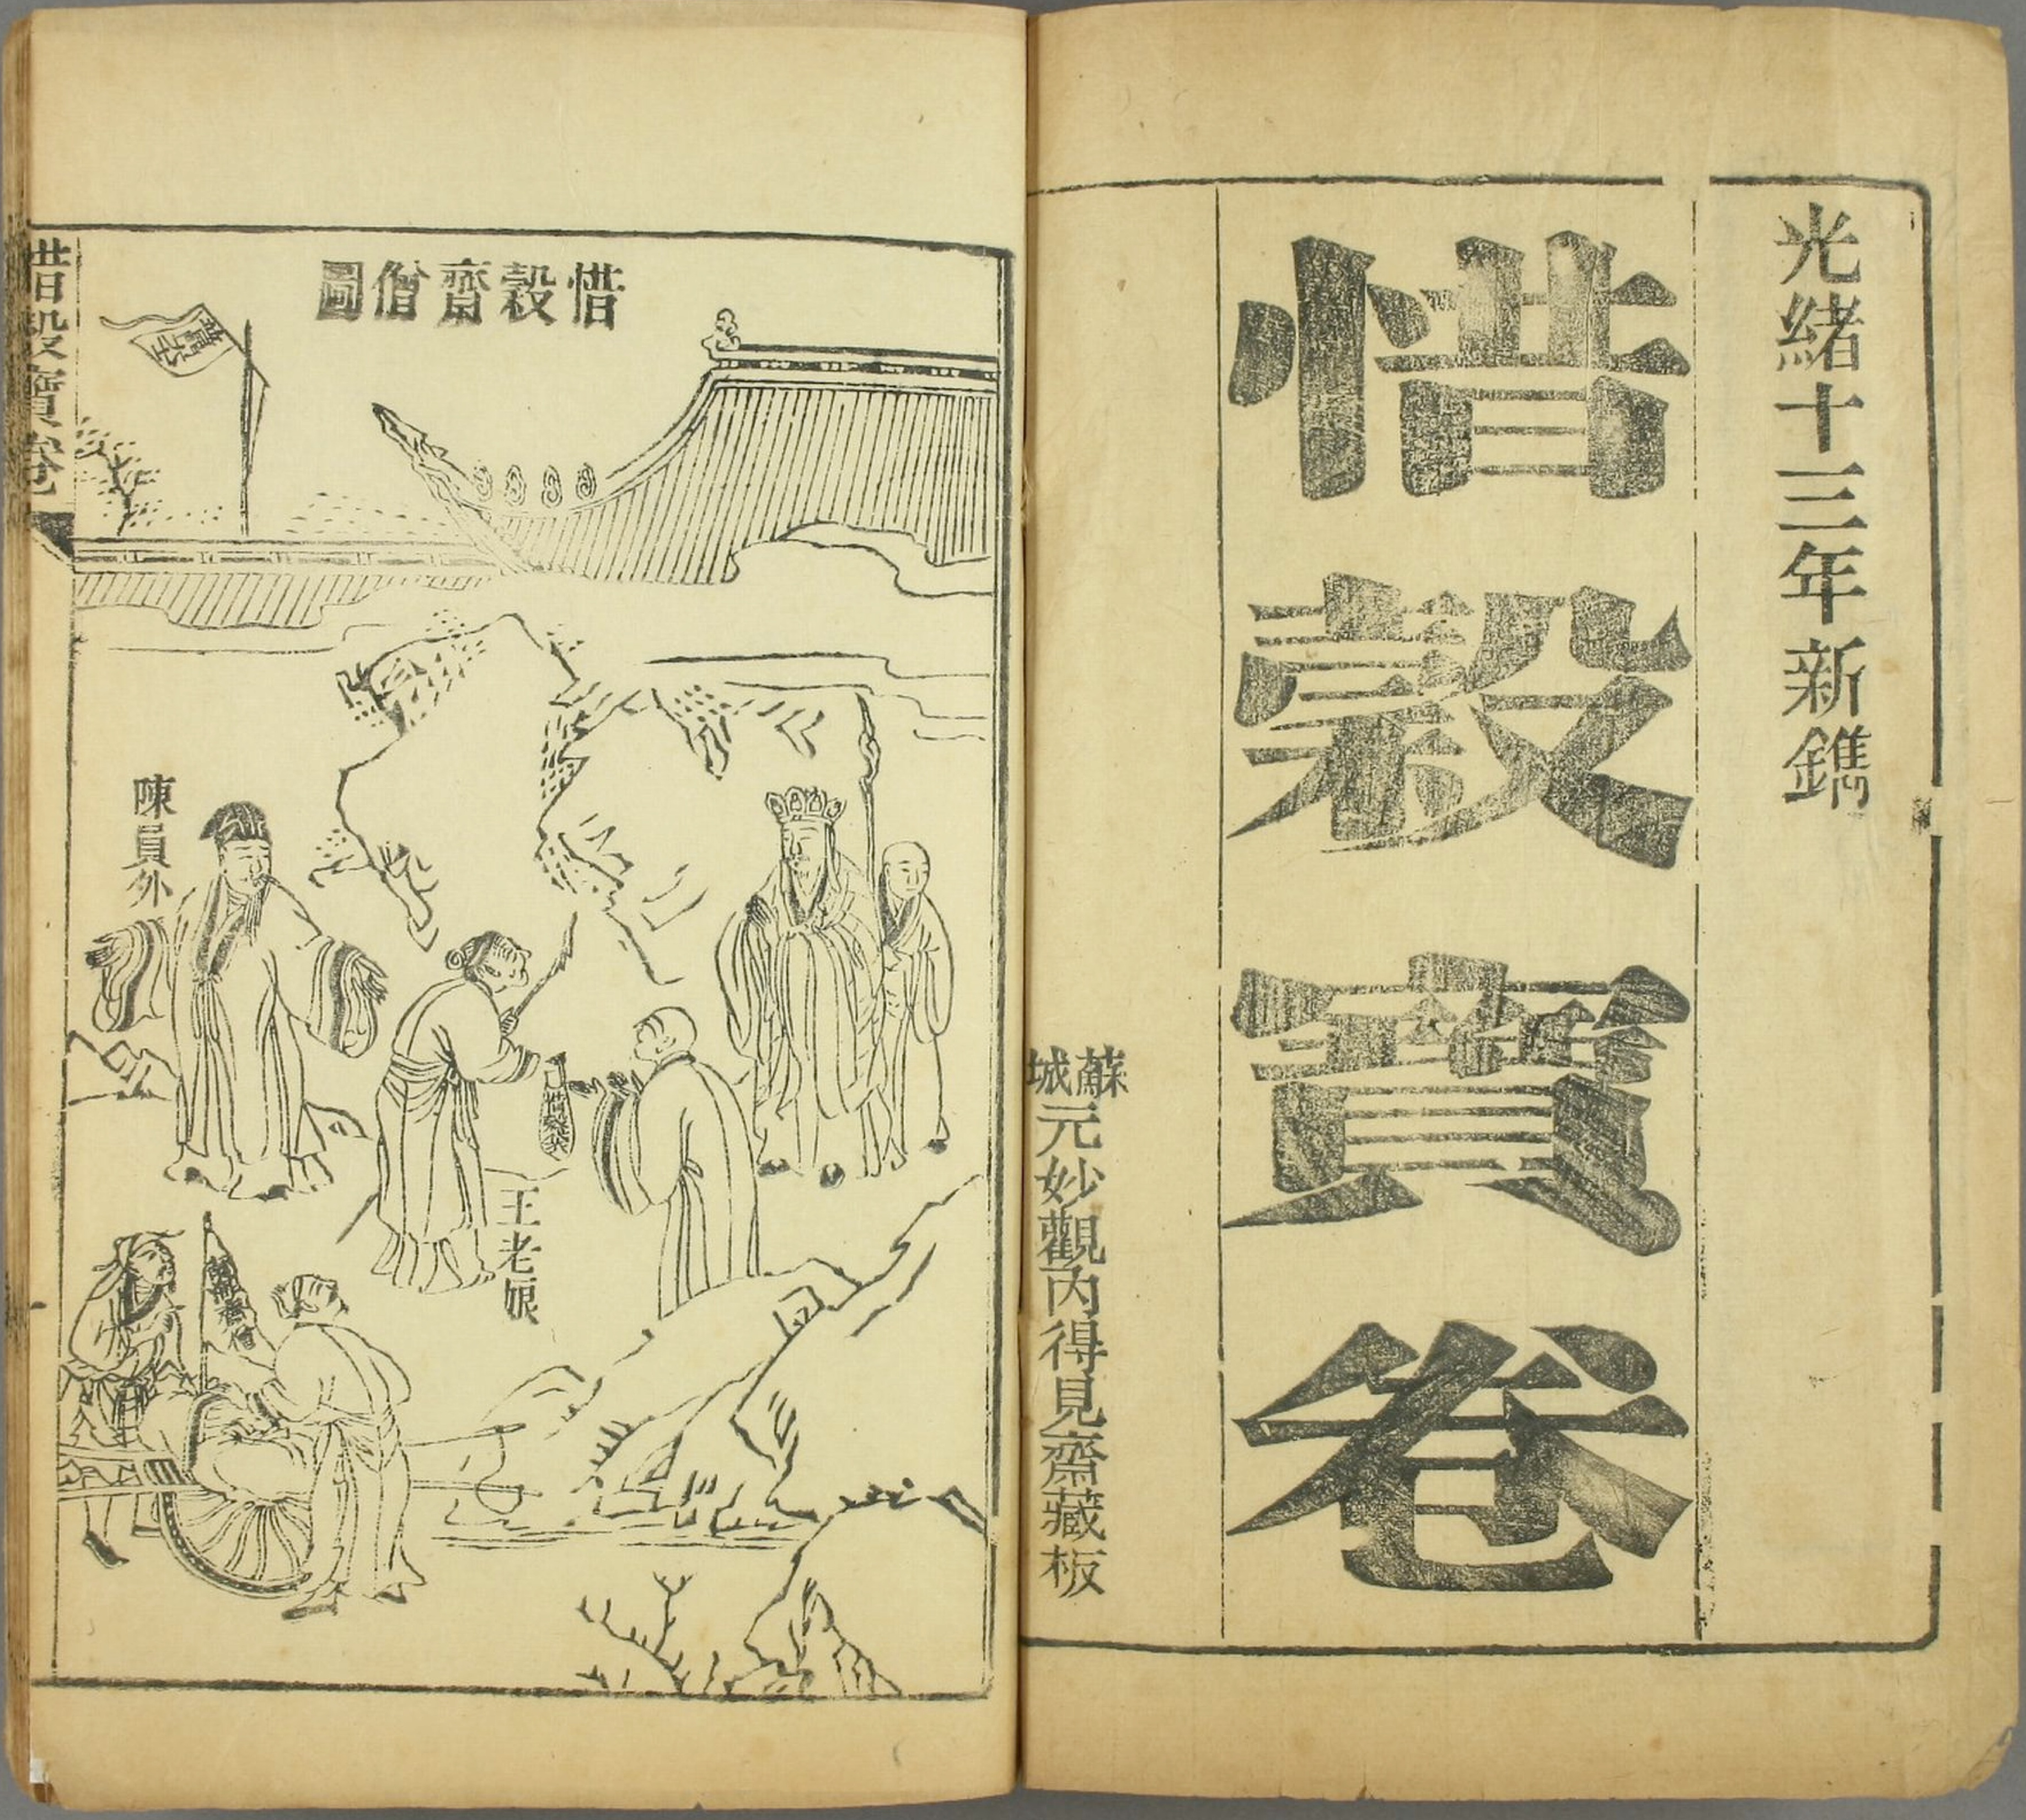 光緒十三年新鐫
惜穀寶卷
蘇城元妙觀內得見齋藏板
惜穀齋僧圖
陳員外
王老娘
惜穀寶卷